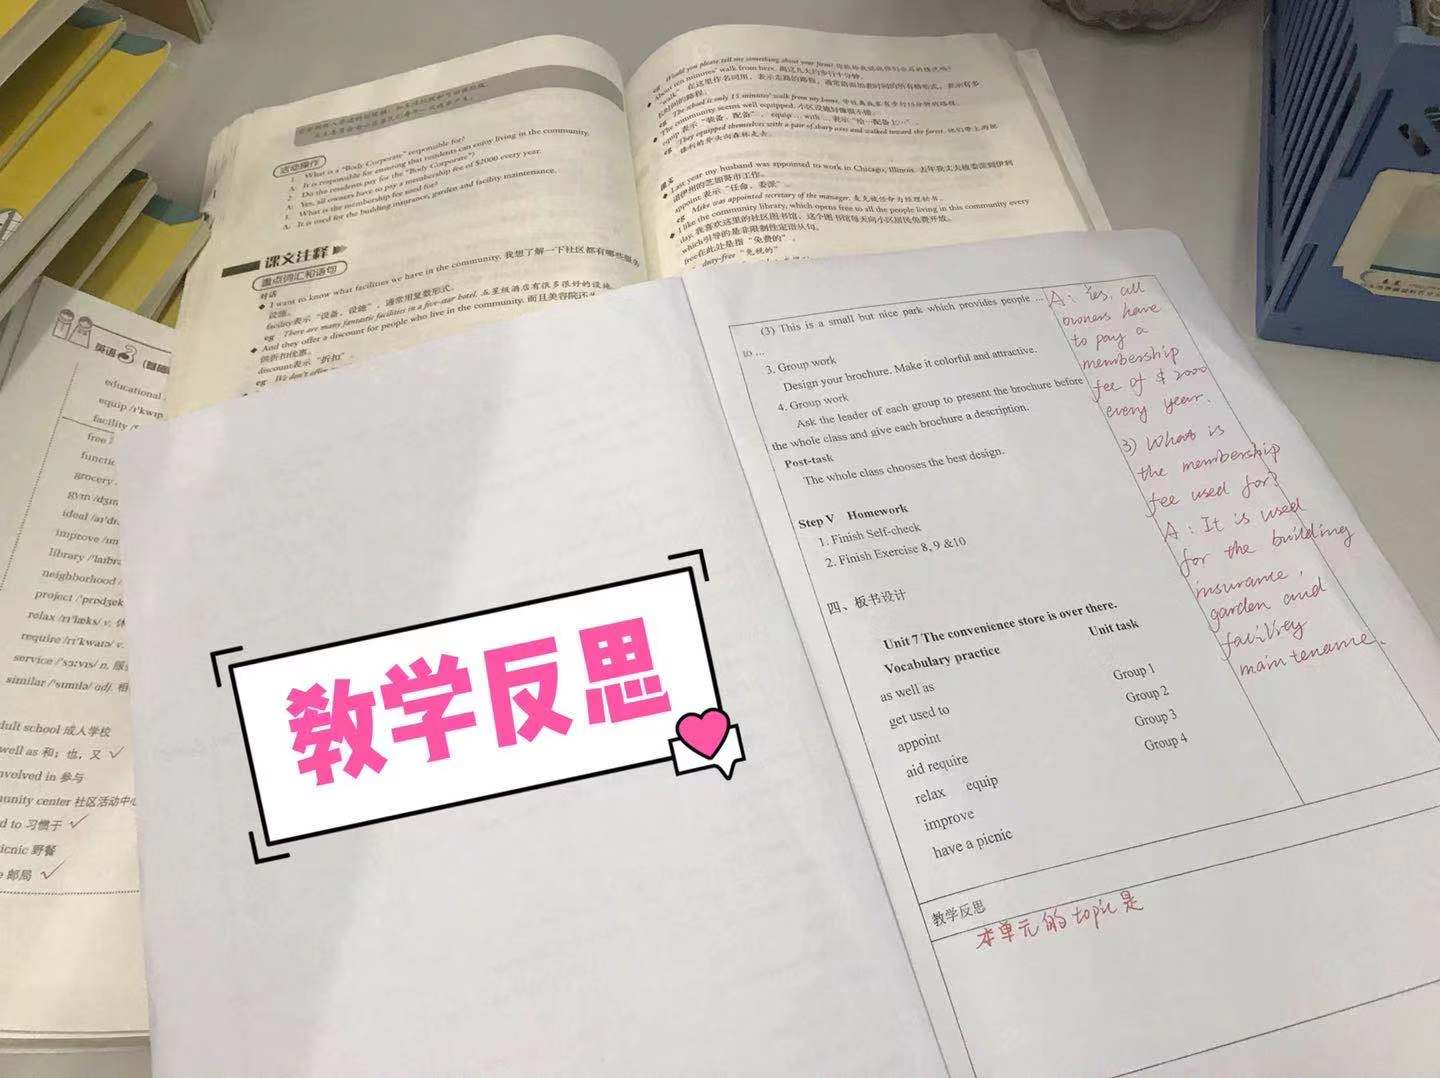 活动操作
What is a "Body Corporate" responsible for?
A. It is responsible for ensuring that residents can enjoy living in the community.
2. Do the residents pay for the "Body Corporate"?
A: Yes, all owners have to pay a membership fee of $2000 every year.
What is the membership fee used for?
A. It is used for the building insurance, garden and facility maintenance.
课文注释
重点词汇和语句
对话
◆ I want to know what facilities we have in the community. 我想了解一下社区都有哪些服务
设施。
facility表示“设备、设施”，通常用复数形式。
eg There are many fantastic facilities in a five-star hotel. 五星级酒店有很多很好的设施
◆ And they offer a discount for people who live in the community. 而且美容院还
供折扣优惠。
discount表示“折扣”
eg We don't offer
eg Would you please tell me something about your farm?
◆ About ten minutes' walk from here.
eg The school is only 15 minutes' walk from my home.
◆ The community seems well equipped. 小区设施好像很不错。
equip 表示“装备、配备”，equip... with ...表示“给…配备上…”。
eg They equipped themselves with a pair of sharp axes and walked toward the forest.
课文
◆ Last year my husband was appointed to work in Chicago, Illinois. 去年我丈夫被委派到伊利
诺伊州的芝加哥市工作。
appoint 表示“任命、委派”
eg Mike was appointed secretary of the manager. 麦克被任命为经理秘书。
◆ I like the community library, which opens free to all the people living in this community every
day. 我喜欢这里的社区图书馆，这个图书馆每天向小区居民免费开放。
which引导的是非限制性定语从句。
free在此处是指“免费的”，
duty-free “免税的”
英语 2
educational
equip /ɪ'kwɪp
facility
free
functi
grocery
gym /dʒɪm
ideal /aɪ'dɪ
improve /ɪm
library /'laɪbrə
neighborhood /
project /'prɒdʒek
relax /rɪ'læks/ v. 休
require /rɪ'kwaɪə/ v.
service /'sɜːvɪs/ n. 服
similar /'sɪmɪlə/ adj. 相
dult school 成人学校
well as 和；也，又 ✓
nvolved in 参与
unity center 社区活动中心
d to 习惯于 ✓
icnic 野餐
e 邮局 ✓
(3) This is a small but nice park which provides people ...
to ...
3. Group work
Design your brochure. Make it colorful and attractive.
4. Group work
Ask the leader of each group to present the brochure before
the whole class and give each brochure a description.
Post-task
The whole class chooses the best design.
Step V Homework
1. Finish Self-check
2. Finish Exercise 8, 9 &10
四、板书设计
Unit 7 The convenience store is over there.
Vocabulary practice Unit task
as well as Group 1
get used to Group 2
appoint Group 3
aid require Group 4
relax equip
improve
have a picnic
A: Yes, all
owners have
to pay a
membership
fee of $2000
every year.
3) What is
the membership
fee used for?
A: It is used
for the building
insurance,
garden and
facility
maintename.
教学反思
本单元的topic是
教学反思